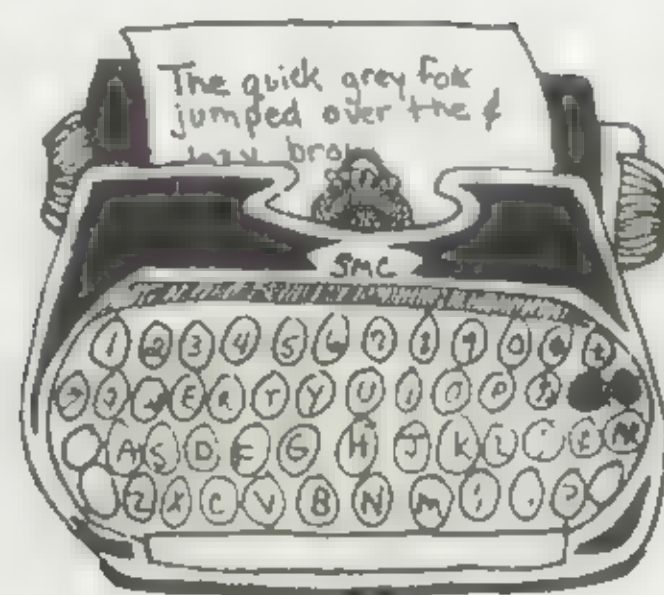 The quick grey fox
jumped over the
SMC
1 2 3 4 5 6 7 8 9 0
E R T Y U I O P
A S D F G H J K L
Z X C V B N M